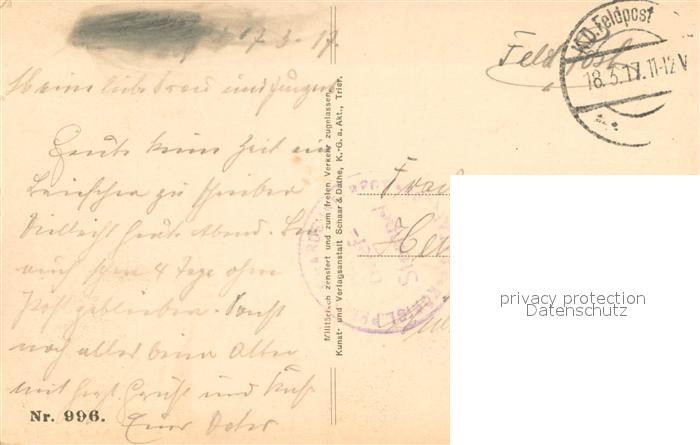 17.3.17.
Meine liebe Frau und Jungens
Heute keine Zeit ein
Briefchen zu schreiben
Vielleicht heute Abend. Bin
auch schon 4 Tage ohne
Post geblieben. Sonst
noch alles beim Alten
mit herzl. Gruß und Kuß
Euer Vater
Nr. 996.
Militärisch zensiert und zum freien Verkehr zugelassen.
Kunst- und Verlagsanstalt Schaar & Dathe, K.-G. a. Akt., Trier.
Feldpost
K.D. Feldpost
18.3.17. 11-12 V
Frau
privacy protection
Datenschutz